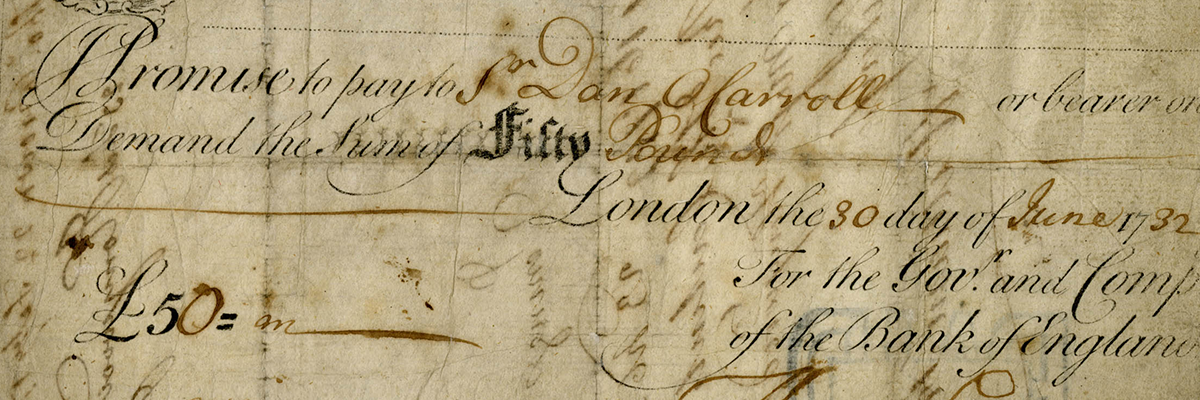 I Promise to pay to Sr. Dan O Carroll or bearer on
Demand the Sum of Fifty Pounds
London the 30 day of June 1732
For the Govr. and Comp
of the Bank of England
£50=